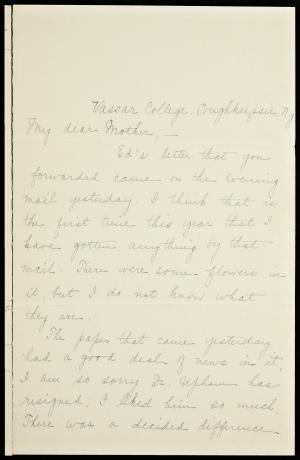 Vassar College. Poughkeepsie, N.Y.
My dear Mother, –
Ed's letter that you
forwarded came on the evening
mail yesterday. I think that is
the first time this year that I
have gotten anything by that
mail. There were some flowers in
it, but I do not know what
they are.
The paper that came yesterday
had a good deal of news in it.
I am so sorry Dr. Upham has
resigned; I liked him so much.
There was a decided difference